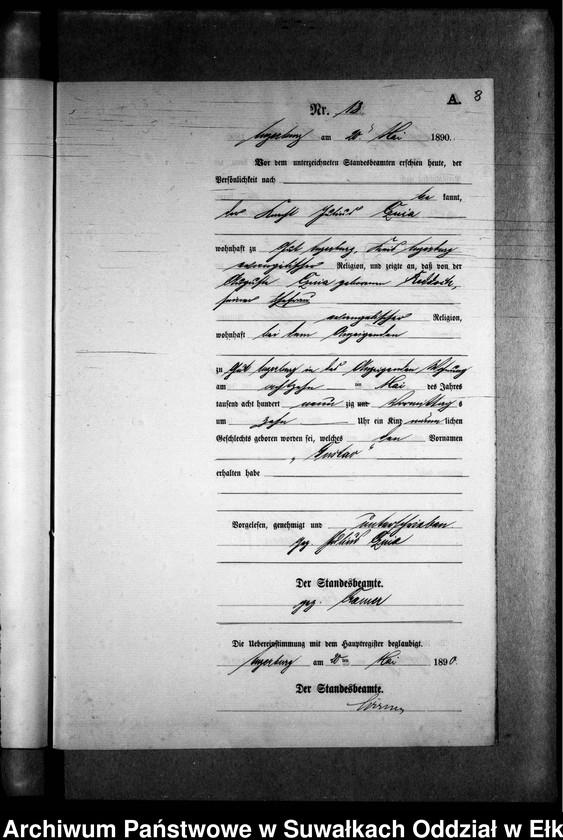 A. 8
Nr. 12
am 20 Mai 1890.
Vor dem unterzeichneten Standesbeamten erschien heute, der
Persönlichkeit nach
be kannt,
der Knecht Julius
wohnhaft zu Gut Kreis
evangelischer Religion, und zeigte an, daß von der
Auguste geborenen
seiner Ehefrau
evangelischer Religion,
wohnhaft bei dem Anzeigenden
zu Gut in des Anzeigenden Wohnung
am achtzehn ten Mai des Jahres
tausend acht hundert neun zig und Vormittag s
um zehn Uhr ein Kind männ lichen
Geschlechts geboren worden sei, welches den Vornamen
„Gustav“
erhalten habe
Vorgelesen, genehmigt und unterschrieben
gez. Julius
Der Standesbeamte.
gez.
Die Uebereinstimmung mit dem Hauptregister beglaubigt.
am 20 ten Mai 1890.
Der Standesbeamte.
Archiwum Państwowe w Suwałkach Oddział w Ełk